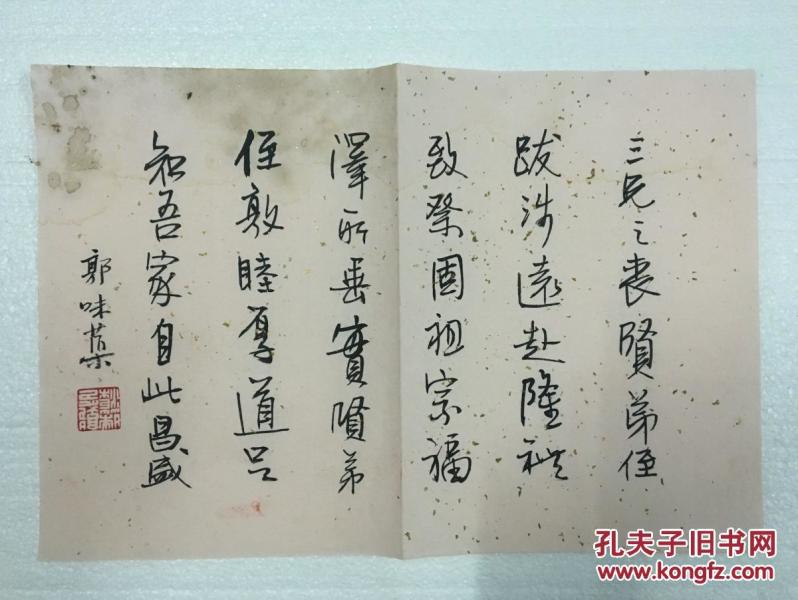 三兄之丧賢弟侄
跋涉遠赴隆礼
致祭固祖宗福
澤所垂實賢弟
侄敦睦厚道吕
知吾家自此昌盛
郭味蕖
孔夫子旧书网
www.kongfz.com